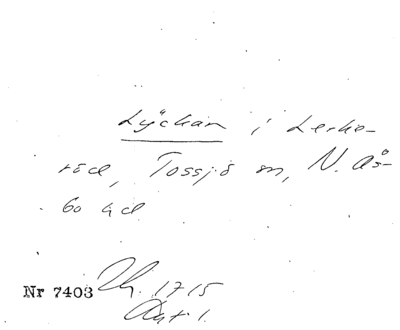 Lÿckan i Lerke-
röd, Tossjö sn, N. Ås-
bo hd
Nr 7403
Lh. 1715
Akt 1.